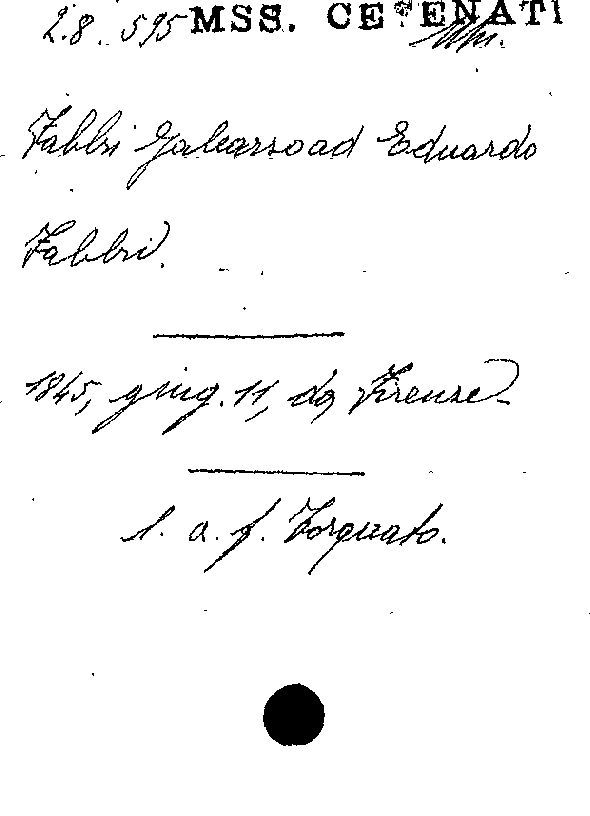 2.8.595 MSS. CESENATI
Fabbri Galeazzo ad Eduardo
Fabbri.
1845, giug. 11, da Firenze
l. a. f. Torquato.